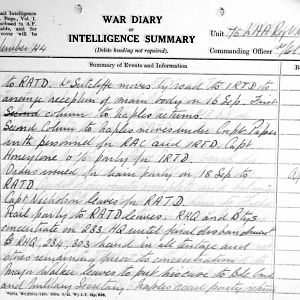 d Intelligence
Regs., Vol. I.
mber 44
WAR DIARY
or
INTELLIGENCE SUMMARY
(Delete heading not required).
Unit 75 LAA Reg
Commanding Officer
Summary of Events and Information
to RATD. Lt Sutcliffe moves by road to 1RTD to
arrange reception of main body on 16 Sep. First
Second column to Naples returns.
Second Column to Naples moves under Capt
with personnel for RAC and 1RTD. Capt
Honeytone o/c party for 1RTD.
Orders issued for main party on 18 Sep to
RATD.
Capt Nicholson leaves for RATD.
Rail party to RATD leaves. RHQ and Btys
concentrate on 233 HQ until final disbandment
RHQ, 234, 303 hand in all tentage and
stores remaining prior to concentration
Major Walker leaves to put his case to
and Military Secretary. Naples road party return